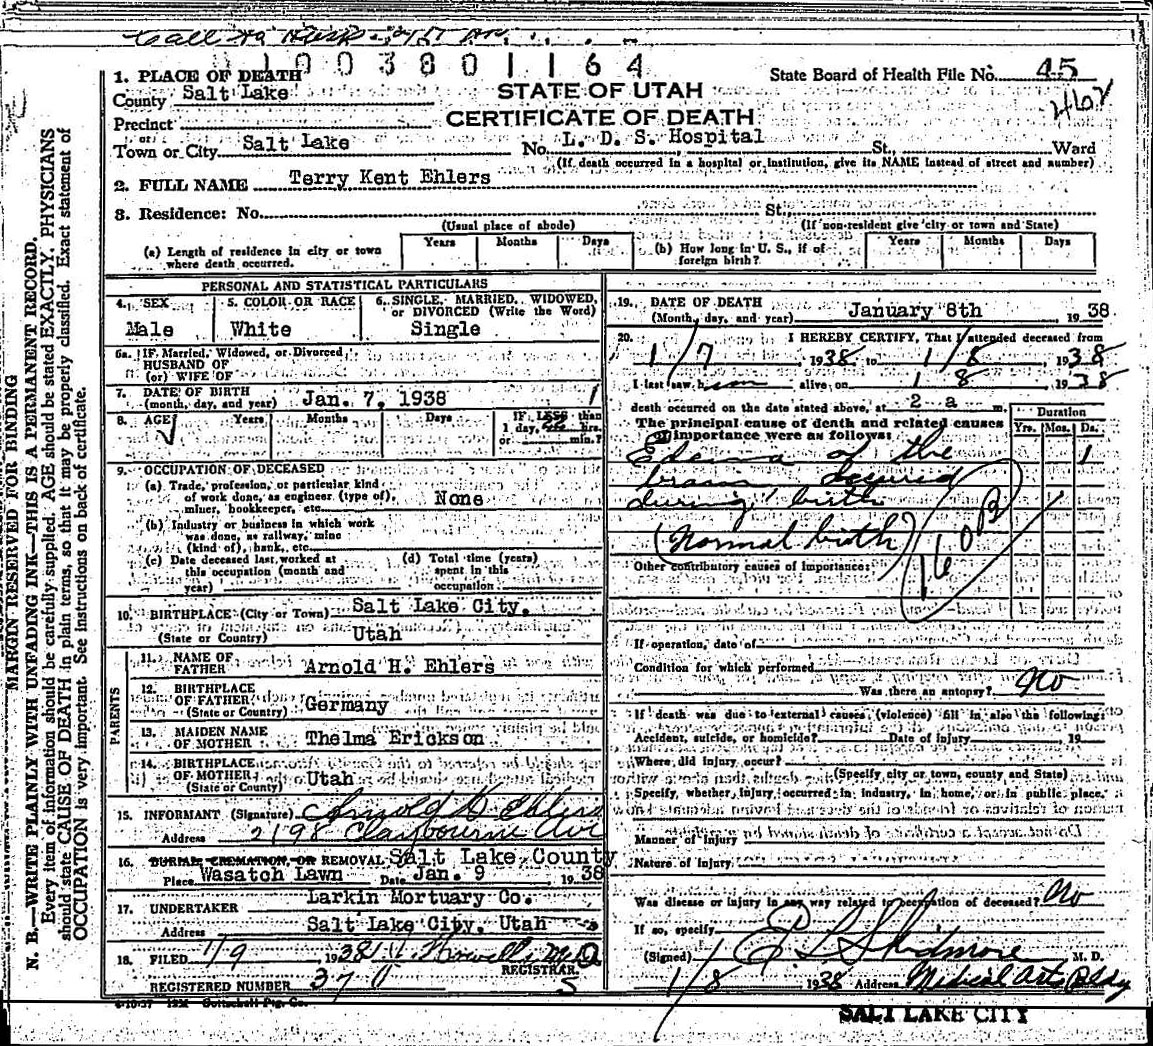 0 1 0 0 3 8 0 1 1 6 4
State Board of Health File No. 45
462
STATE OF UTAH
CERTIFICATE OF DEATH
1. PLACE OF DEATH
County Salt Lake
Precinct
or
Town or City Salt Lake No. L. D. S. Hospital St., Ward
(If death occurred in a hospital or institution, give its NAME instead of street and number)
2. FULL NAME Terry Kent Ehlers
3. Residence: No. St.,
(Usual place of abode) (If non-resident give city or town and State)
(a) Length of residence in city or town where death occurred. Years Months Days (b) How long in U. S., if of foreign birth? Years Months Days
MARGIN RESERVED FOR BINDING
N. B.—WRITE PLAINLY WITH UNFADING INK—THIS IS A PERMANENT RECORD.
Every item of information should be carefully supplied. AGE should be stated EXACTLY. PHYSICIANS
should state CAUSE OF DEATH in plain terms, so that it may be properly classified. Exact statement of
OCCUPATION is very important. See instructions on back of certificate.
PERSONAL AND STATISTICAL PARTICULARS
4. SEX
Male
5. COLOR OR RACE
White
6. SINGLE, MARRIED, WIDOWED, or DIVORCED (Write the Word)
Single
6a. If Married, Widowed, or Divorced
HUSBAND OF
(or) WIFE OF
7. DATE OF BIRTH
(month, day, and year) Jan. 7, 1938
8. AGE Years Months Days IF LESS than
1 day, hrs.
or min.?
9. OCCUPATION OF DECEASED
(a) Trade, profession, or particular kind
of work done, as engineer (type of),
miner, bookkeeper, etc. None
(b) Industry or business in which work
was done, as railway, mine
(kind of), bank, etc.
(c) Date deceased last worked at
this occupation (month and
year)
(d) Total time (years)
spent in this
occupation
10. BIRTHPLACE (City or Town) Salt Lake City,
(State or Country) Utah
PARENTS
11. NAME OF
FATHER Arnold H. Ehlers
12. BIRTHPLACE
OF FATHER
(State or Country) Germany
13. MAIDEN NAME
OF MOTHER Thelma Erickson
14. BIRTHPLACE
OF MOTHER
(State or Country) Utah
15. INFORMANT (Signature) Arnold H Ehlers
Address 2198 Claybourne Ave
16. BURIAL, CREMATION, OR REMOVAL Salt Lake County
Place Wasatch Lawn Date Jan. 9, 1938
17. UNDERTAKER Larkin Mortuary Co.
Address Salt Lake City, Utah
18. FILED 1/9 1938
REGISTRAR
REGISTERED NUMBER 37
19. DATE OF DEATH
(Month, day, and year) January 8th 1938
20. I HEREBY CERTIFY, That I attended deceased from
1/7 1938 to 1/8, 1938
I last saw him alive on 1 8, 1938
death occurred on the date stated above, at 2 a m.
The principal cause of death and related causes
of importance were as follows:
Duration
Yrs. Mos. Ds.
Edema of the 1
brain occurred
during birth
(Normal birth)
160B
Other contributory causes of importance:
If operation, date of
Condition for which performed
Was there an autopsy? No
If death was due to external causes (violence) fill in also the following:
Accident, suicide, or homicide? Date of injury 19
Where did injury occur?
(Specify city or town, county and State)
Specify, whether injury occurred in industry, in home, or in public place.
Manner of injury
Nature of injury
Was disease or injury in any way related to occupation of deceased? No
If so, specify
(Signed) E L Skidmore M. D.
1/8 1938 Address Medical Arts Bldg
SALT LAKE CITY